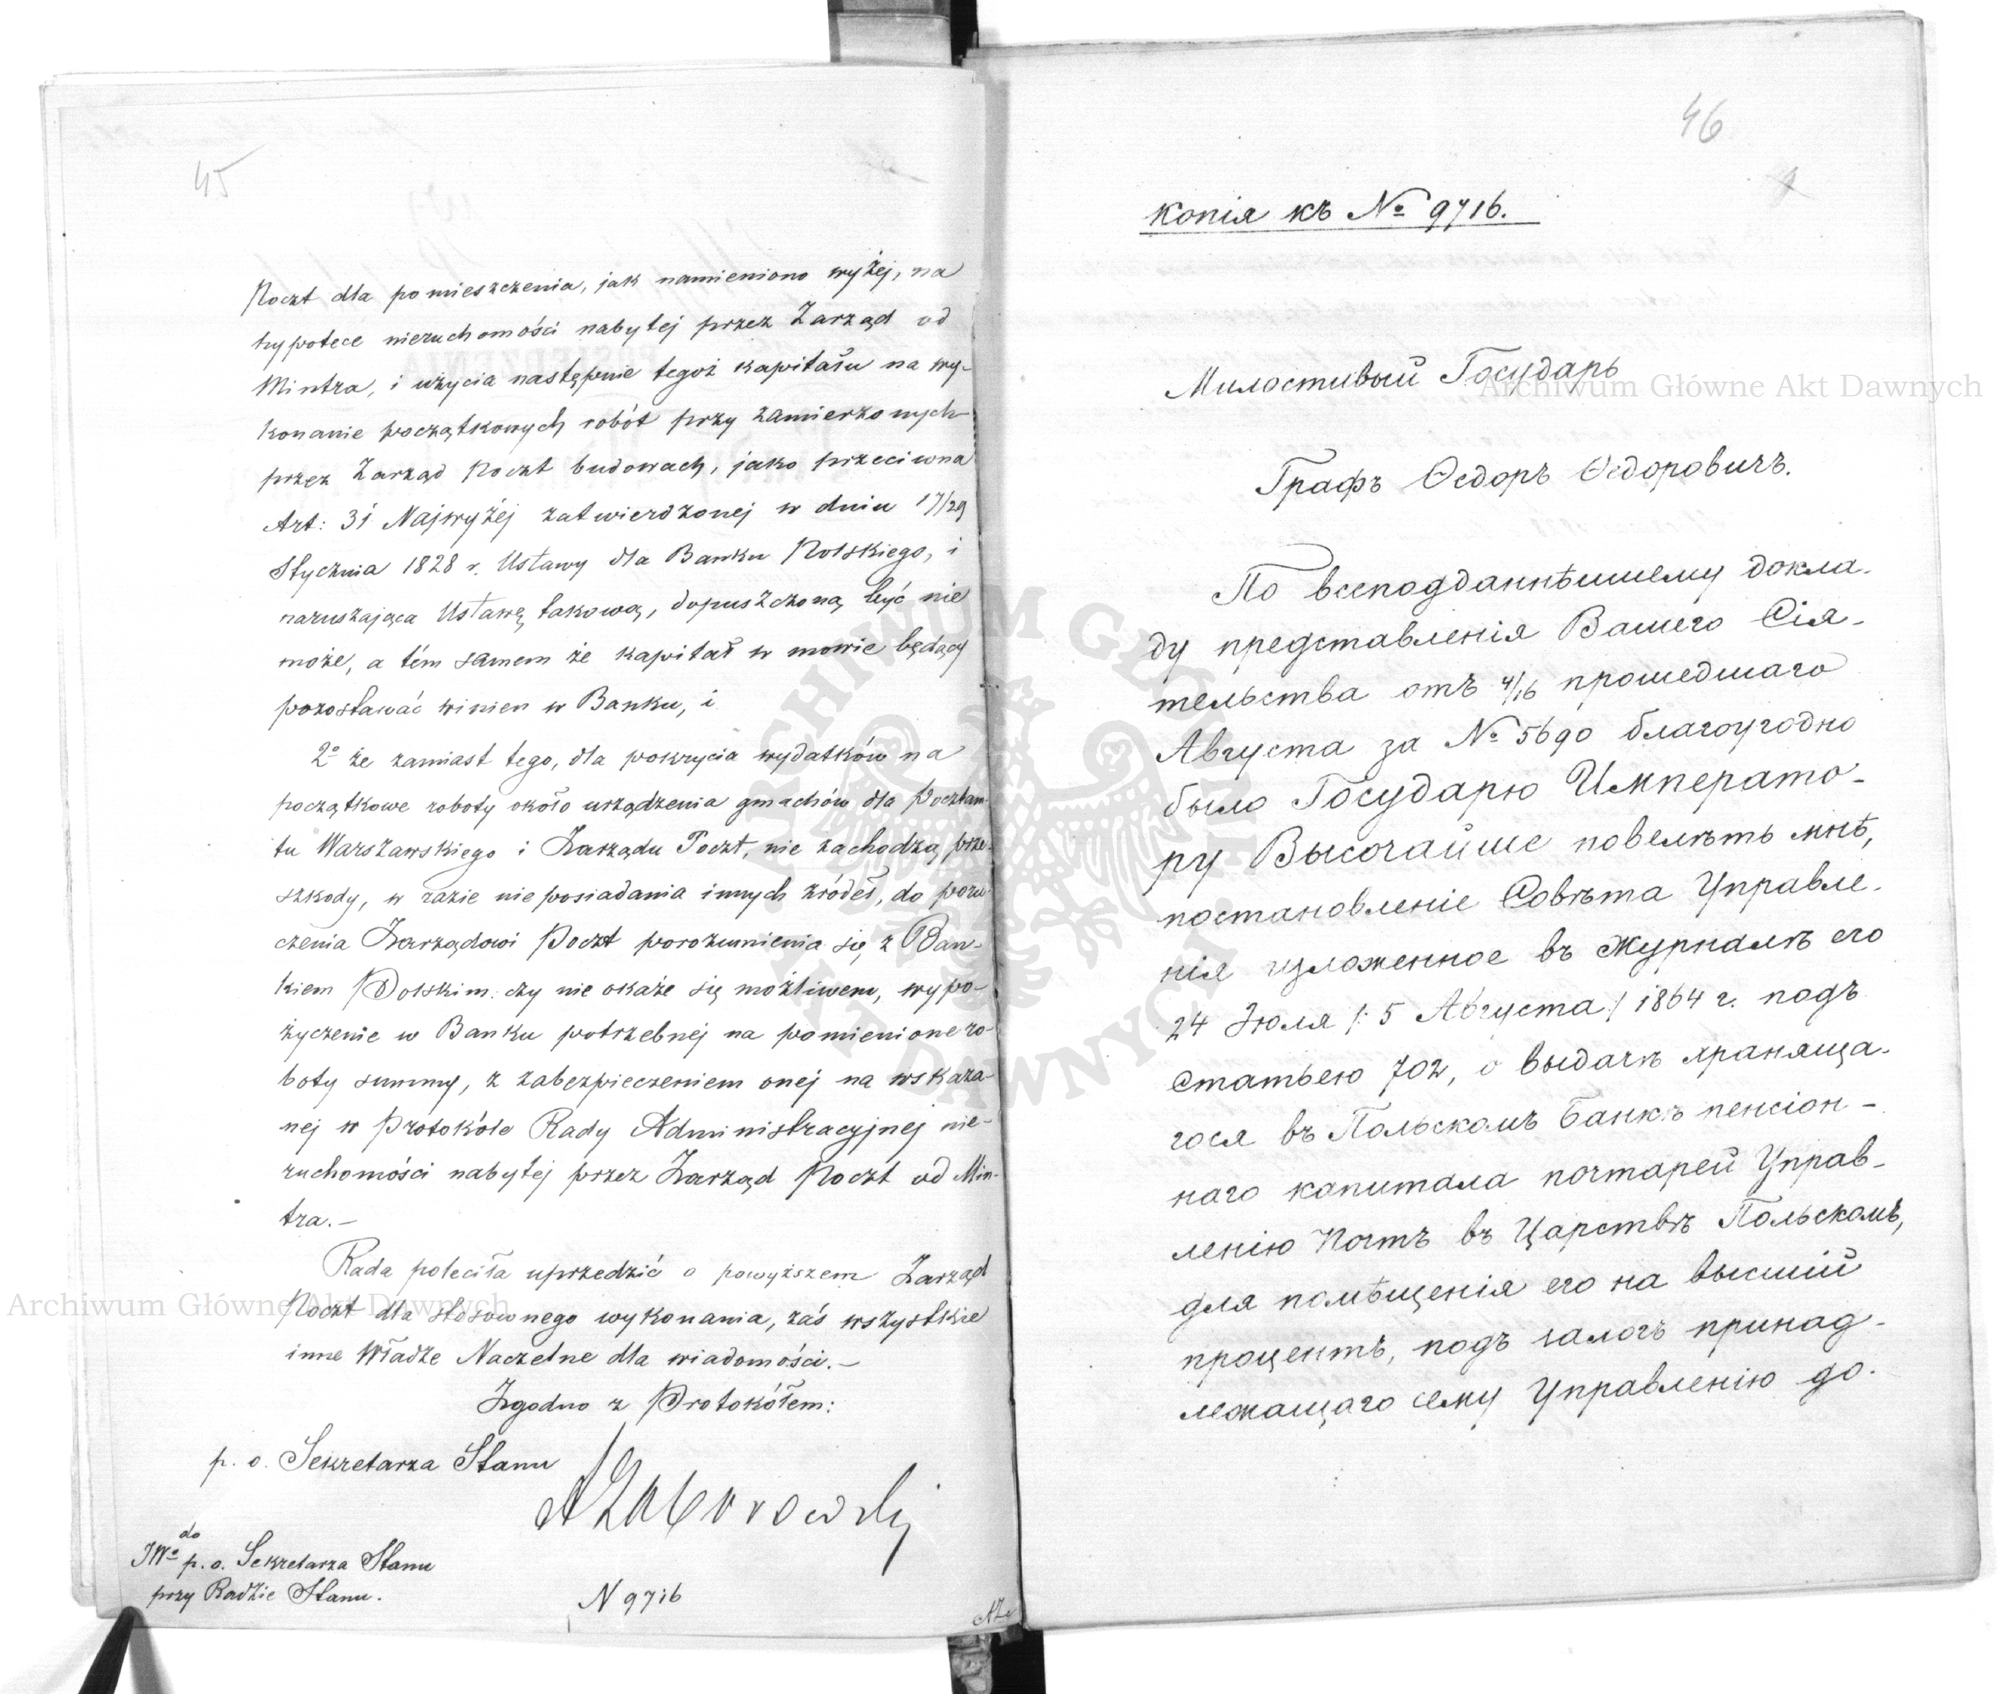 45
Poczt dla pomieszczenia, jak namieniono wyżej, na
hypotece nieruchomości nabytej przez Zarząd od
Mintra, i użycia następnie tegoż kapitału na wy-
konanie początkowych robót przy zamierzonych
przez Zarząd Poczt budowach, jako przeciwna
Art: 31 Najwyżéj zatwierdzonej w dniu 17/29
Stycznia 1828 r. Ustawy dla Banku Polskiego, i
naruszająca Ustawę takową, dopuszczoną być nie
może, a tém samem że kapitał w mowie będący
pozostawać winien w Banku, i
2º że zamiast tego, dla pokrycia wydatków na
początkowe roboty około urządzenia gmachów dla Pocztam-
tu Warszawskiego i Zarządu Poczt, nie zachodzą prze-
szkody, w razie nie posiadania innych źródeł, do poru-
czenia Zarządowi Poczt porozumienia się, z Ban-
kiem Polskim: czy nie okaże się możliwem, wypo-
życzenie w Banku potrzebnej na pomienione ro-
boty summy, z zabezpieczeniem onej na wskaza-
nej w Protokóle Rady Administracyjnej nie-
ruchomości nabytej przez Zarząd Poczt od Min-
tra.—
Rada poleciła uprzedzić o powyższem Zarząd
Poczt dla stosownego wykonania, zaś wszystkie
inne Władze Naczelne dla wiadomości.—
Zgodno z Protokółem:
p. o. Sekretarza Stanu
AZaborowski
do
JWº p. o. Sekretarza Stanu
przy Radzie Stanu.
N 9716
46
Копія къ № 9716.
Милостивый Государь
Графъ Ѳедоръ Ѳедоровичъ.
По всеподданнѣйшему докла-
ду представленія Вашего Сія-
тельства отъ 4/16 прошедшаго
Августа за № 5690 благоугодно
было Государю Императо-
ру Высочайше повелѣть мнѣ,
постановленіе Совѣта Управле-
нія изложенное въ Журналѣ его
24 Іюля /: 5 Августа :/ 1864 г. подъ
Статьею 702, о выдачѣ храняща-
гося въ Польскомъ Банкѣ пенсіон-
наго капитала почтарей Управ-
ленію Почтъ въ Царствѣ Польскомъ,
для помѣщенія его на высшій
процентъ, подъ залогъ принад-
лежащаго сему Управленію до-
Archiwum Główne Akt Dawnych
Archiwum Główne Akt Dawnych
ARCHIWUM GŁÓWNE AKT DAWNYCH